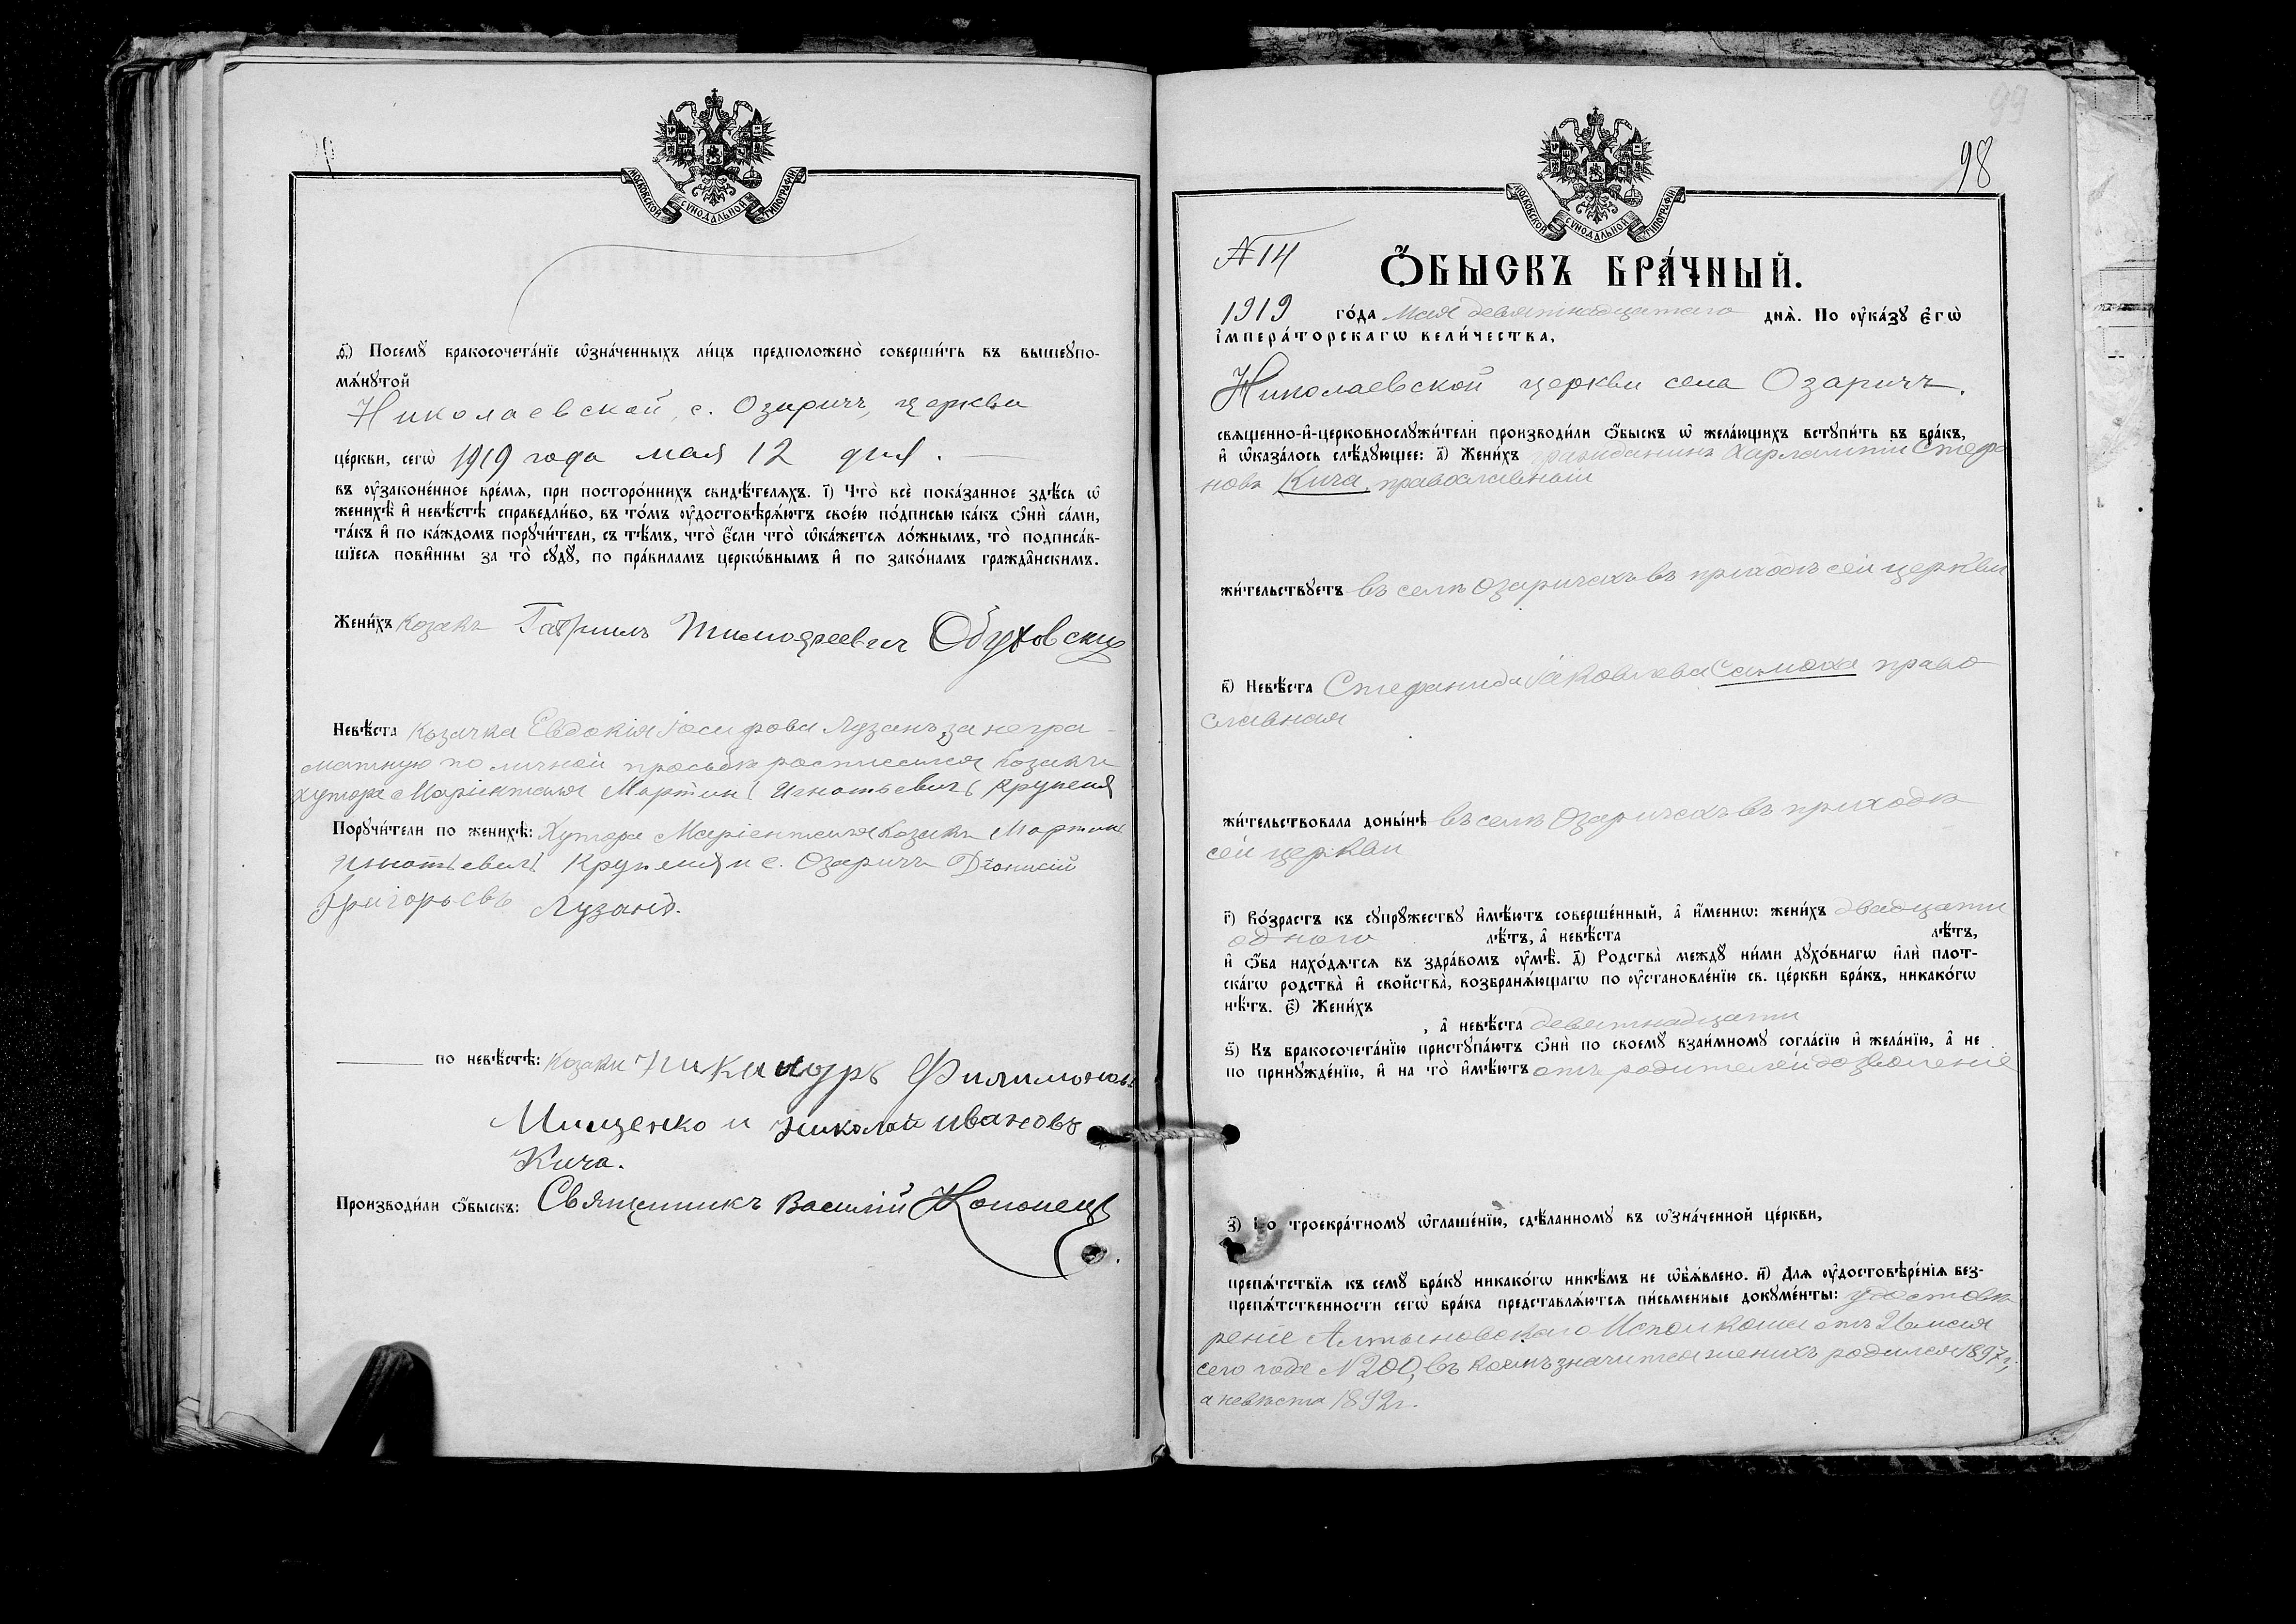 МОСКОВСКОЙ СѴНОДАЛЬНОЙ ТИПОГРАФІИ
Ѳ҃) Посемꙋ̀ бракосочета́нїе ѡ҆зна́ченныхъ ли́цъ предположено̀ соверши́ть въ вышеꙋпо-
мѧ́нꙋтой
Николаевской, с. Озаричъ, церкви
це́ркви, сегѡ̀ 1919 года мая 12 дня.
въ ᲂу҆законе́нное вре́мѧ, при посторо́ннихъ свидѣ́телѧхъ. і҃) Что̀ всѐ пока́занное здѣ́сь ѡ҆
женихѣ̀ и҆ невѣ́стѣ справедли́во, въ то́мъ ᲂу҆достовѣрѧ́ютъ свое́ю по́дписью ка́къ ѻ҆нѝ са́ми,
та́къ и҆ по ка́ждомъ порꙋчи́тели, съ тѣ́мъ, что̀ є҆́сли что̀ ѡ҆ка́жетсѧ ло́жнымъ, то̀ подписа́в-
шїесѧ пови́нны за то̀ сꙋдꙋ̀, по пра́виламъ церкѡ́внымъ и҆ по зако́намъ гражда́нскимъ.
Жени́хъ козакъ Гавріилъ Тимофеевич Обуховский
Невѣ́ста козачка Евдокія Іосифова Лузанъ, за негра-
мотную по личной просьбѣ росписался козакъ
хутора Маріенталя Мартин Игнатьевич Крупеня
Порꙋчи́тели по женихѣ̀: Хутора Маріенталя козакъ Мартин
Игнатьевич Крупеня и с. Озаричъ Діонисій
Григорьевъ Лузанъ.
по невѣ́стѣ: козаки Никаноръ Филимоновъ
Мищенко и Николай Ивановъ
Кича.
Производи́ли ѻ҆́быскъ: Священникъ Василій Кононецъ
99
98
МОСКОВСКОЙ СѴНОДАЛЬНОЙ ТИПОГРАФІИ
№ 14
Ѻ҆́БЫСКЪ БРА́ЧНЫЙ.
1919 го́да мая девятнадцатаго днѧ̀. По ᲂу҆ка́зꙋ є҆гѡ̀
і҆мпера́торскагѡ вели́чества,
Николаевской церкви села Озаричъ.
свѧще́нно-и҆-церковнослꙋжи́тели производи́ли ѻ҆́быскъ ѡ҆ жела́ющихъ встꙋпи́ть въ бра́къ,
и҆ ѡ҆каза́лось слѣ́дꙋющее: а҃) Жени́хъ гражданинъ Харлампій Стефа
новъ Кича, православный
жи́тельствꙋетъ въ селѣ Озаричахъ въ приходѣ сей церкви
в҃) Невѣ́ста Стефанида Яковлева Самоха право
славная
жи́тельствовала доны́нѣ въ селѣ Озаричахъ въ приходѣ
сей церкви
г҃) Во́зрастъ къ сꙋпрꙋ́жествꙋ и҆мѣ́ютъ соверше́нный, а҆ и҆́меннѡ: жени́хъ двадцати
одного лѣ́тъ, а҆ невѣ́ста лѣ́тъ,
и҆ ѻ҆́ба нахо́дѧтсѧ въ здра́вомъ ᲂу҆мѣ̀. д҃) Родства̀ междꙋ̀ ни́ми дꙋхо́внагѡ и҆лѝ плот-
ска́гѡ родства̀ и҆ сво́йства̀, возбранѧ́ющагѡ по ᲂу҆становле́нїю св. це́ркви бра́къ, никако́гѡ
нѣ́тъ. є҃) Жени́хъ
, а҆ невѣ́ста девятнадцати
ѕ҃) Къ бракосочета́нїю пристꙋпа́ютъ ѻ҆нѝ по своемꙋ̀ взаи́мномꙋ согла́сїю и҆ жела́нїю, а҆ не
по принꙋжде́нїю, и҆ на то̀ и҆мѣ́ютъ отъ родителей дозволеніе
з҃) По троекра́тномꙋ ѡ҆глаше́нїю, сдѣ́ланномꙋ въ ѡ҆зна́ченной це́ркви,
препѧ́тствїѧ къ семꙋ̀ бра́кꙋ никако́гѡ никѣ́мъ не ѡ҆б̾ѧ́влено. и҃) Для ᲂу҆достовѣре́нїѧ без-
препѧ́тственности сегѡ̀ бра́ка представлѧ́ютсѧ пи́сьменные докꙋме́нты: удостовѣ
реніе Алтыновскаго Исполкома отъ 26 мая
сего года № 200, въ коемъ значится женихъ родился 1897 г.,
а невѣста 1892 г.